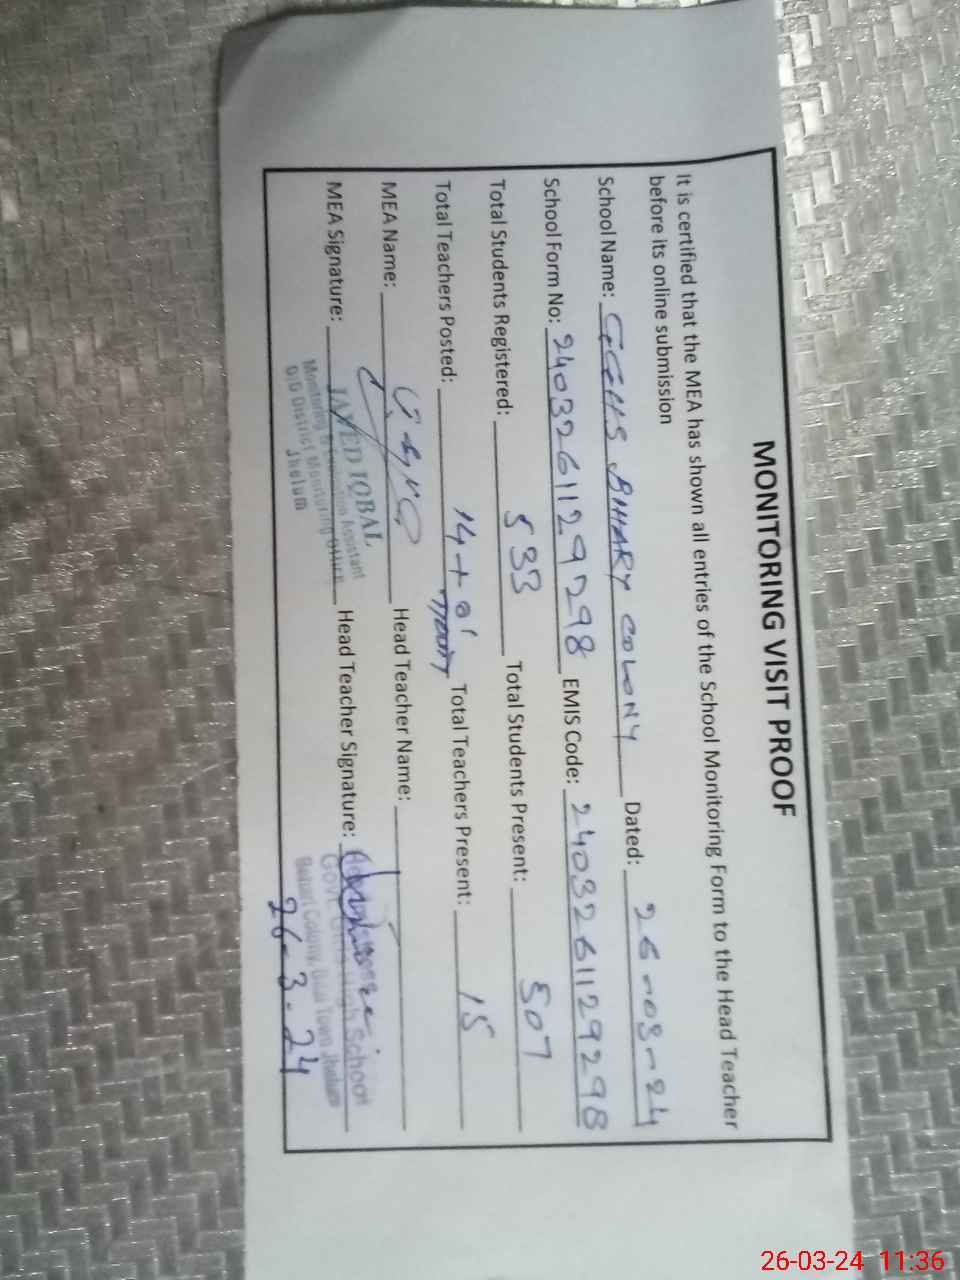 MONITORING VISIT PROOF
It is certified that the MEA has shown all entries of the School Monitoring Form to the Head Teacher
before its online submission
School Name: GGHS BIHARY COLONY Dated: 26-03-24
School Form No: 2403261129298 EMIS Code: 2403261129298
Total Students Registered: 533 Total Students Present: 507
Total Teachers Posted: 14+01 Total Teachers Present: 15
MEA Name: Head Teacher Name:
MEA Signature: Head Teacher Signature:
JAVED IQBAL
Monitoring & Evaluation Assistant
O/O District Monitoring Officer
Jhelum
Headmistress
Govt. Girls High School
Behari Colony, Bilal Town Jhelum
26-3-24
26-03-24 11:36